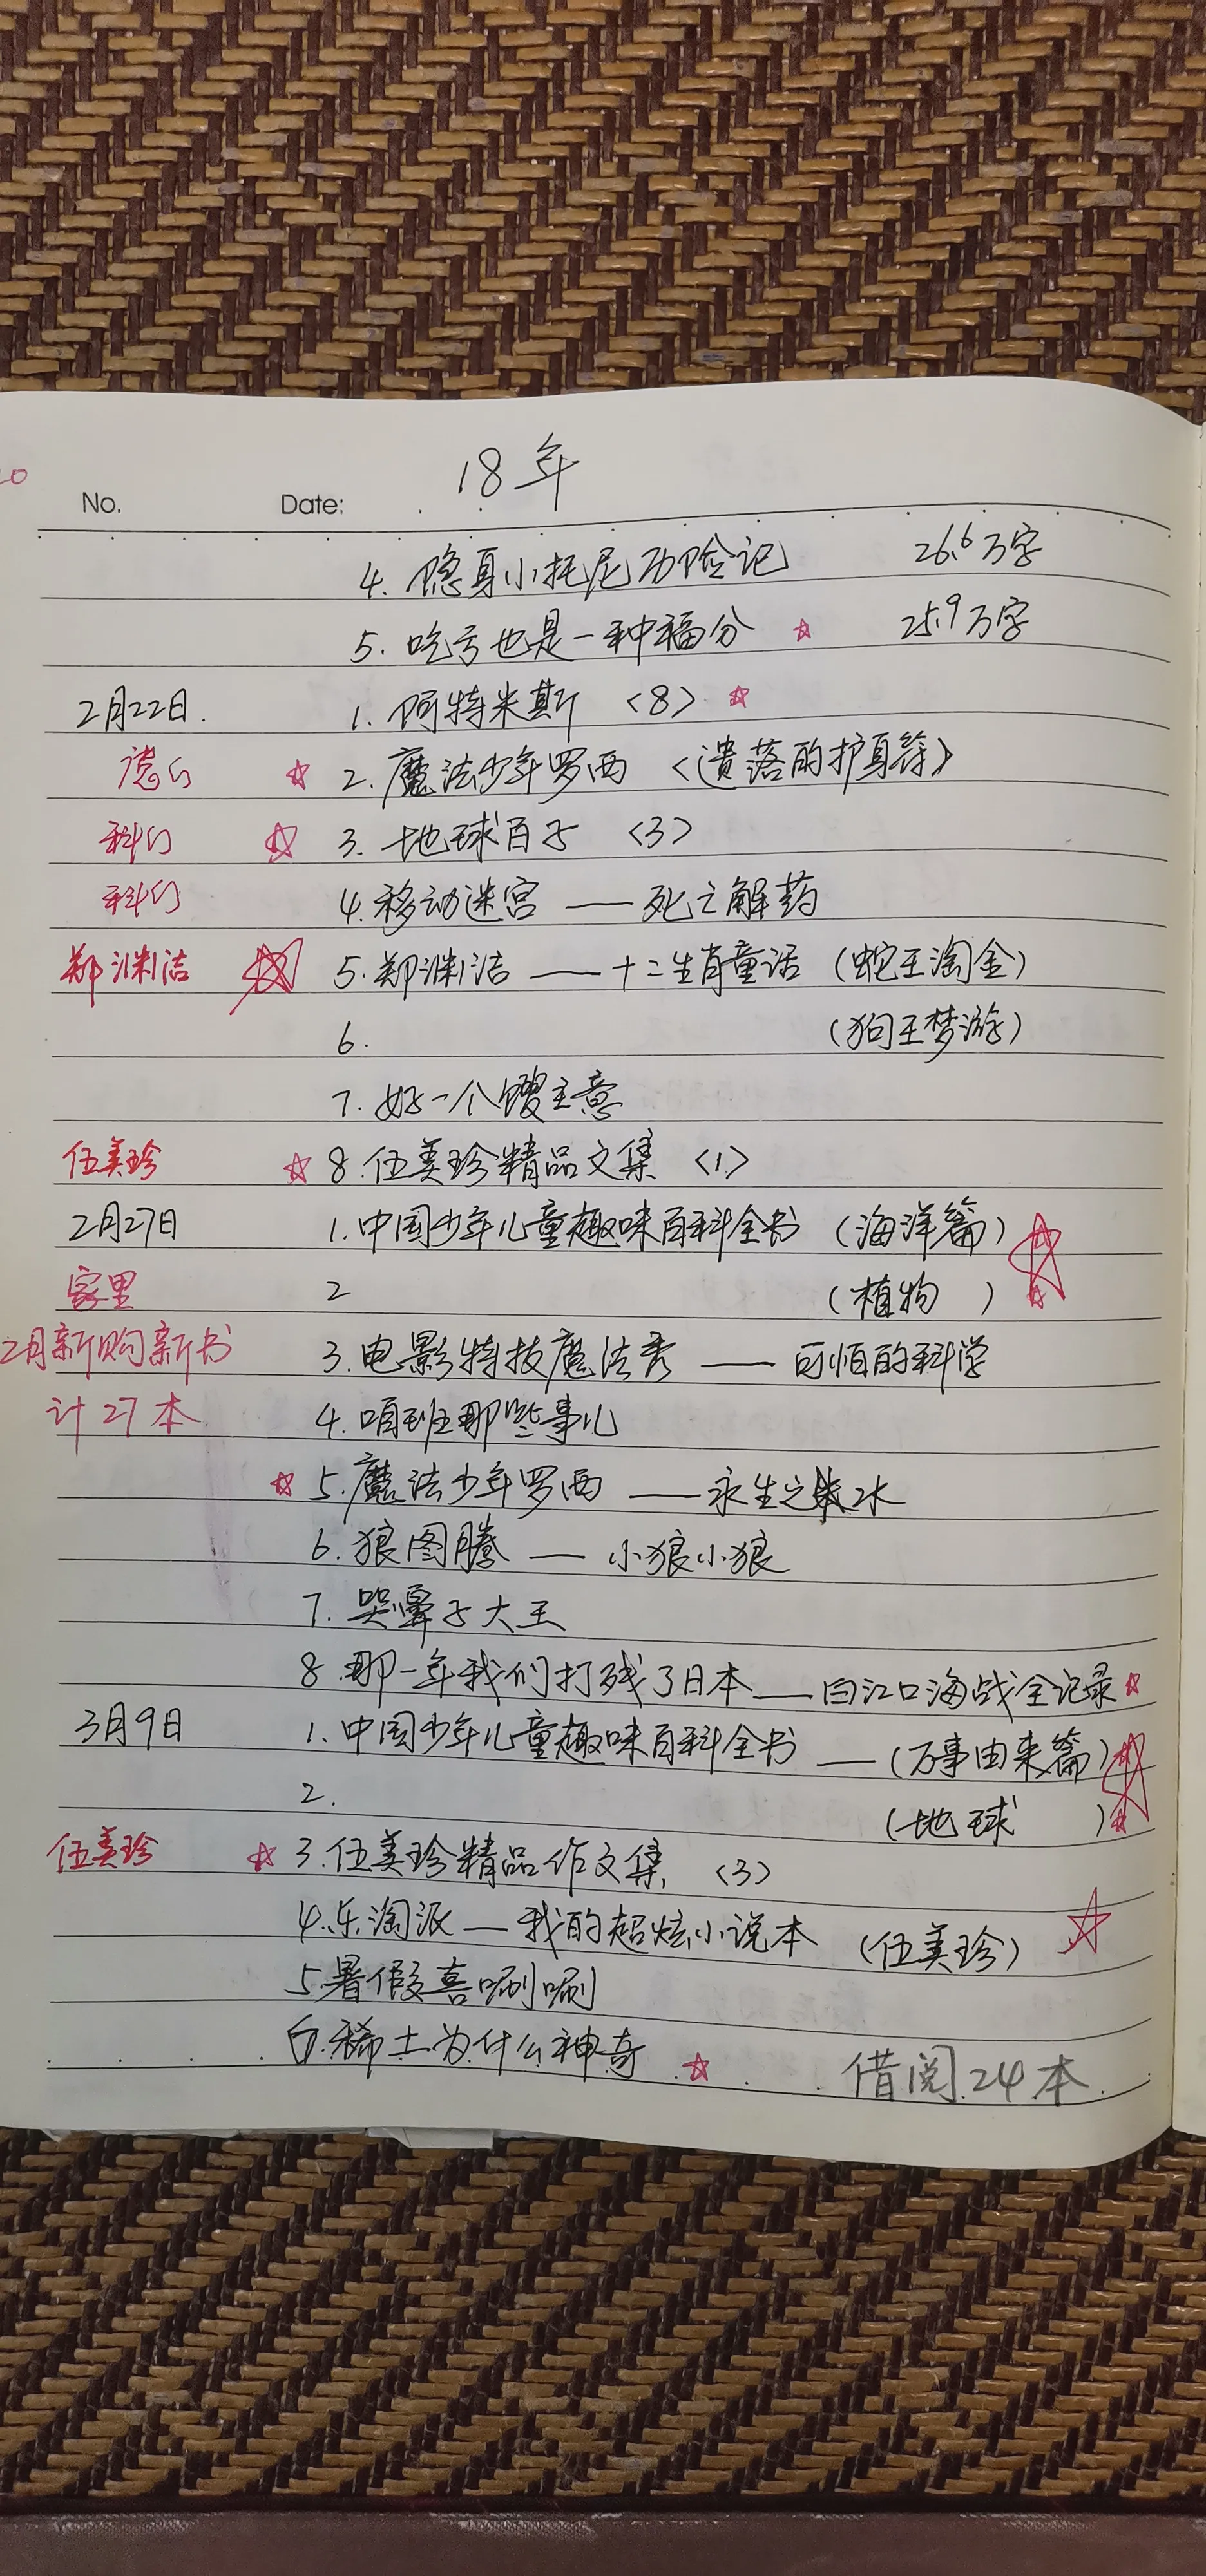 18年
No. Date:
4. 隐身小托尼历险记 26.6万字
5. 吃亏也是一种福分 ☆ 25.9万字
2月22日. 1. 阿特米斯 〈8〉 ☆
☆ 2. 魔法少年罗西 〈遗落的护身符〉
科幻 ☆ 3. 地球百子 〈3〉
科幻 4. 移动迷宫 —— 死亡解药
郑渊洁 ☆ 5. 郑渊洁 —— 十二生肖童话 (蛇王淘金)
6. (狗王梦游)
7. 好一个馊主意
伍美珍 ☆ 8. 伍美珍精品文集 〈1〉
2月27日 1. 中国少年儿童趣味百科全书 (海洋篇) ☆
家里 2 (植物 ) ☆
2月新购新书 3. 电影特技魔法秀 —— 可怕的科学
计27本 4. 咱班那些事儿
☆ 5. 魔法少年罗西 —— 永生之水
6. 狼图腾 —— 小狼小狼
7. 哭鼻子大王
8. 那一年我们打残了日本 —— 白江口海战全记录 ☆
3月9日 1. 中国少年儿童趣味百科全书 —— (万事由来篇) ☆
2. (地球 ) ☆
伍美珍 ☆ 3. 伍美珍精品作文集 〈3〉
4. 乐淘派 — 我的超炫小说本 (伍美珍) ☆
5. 暑假喜唰唰
6. 稀土为什么神奇 ☆ 借阅24本